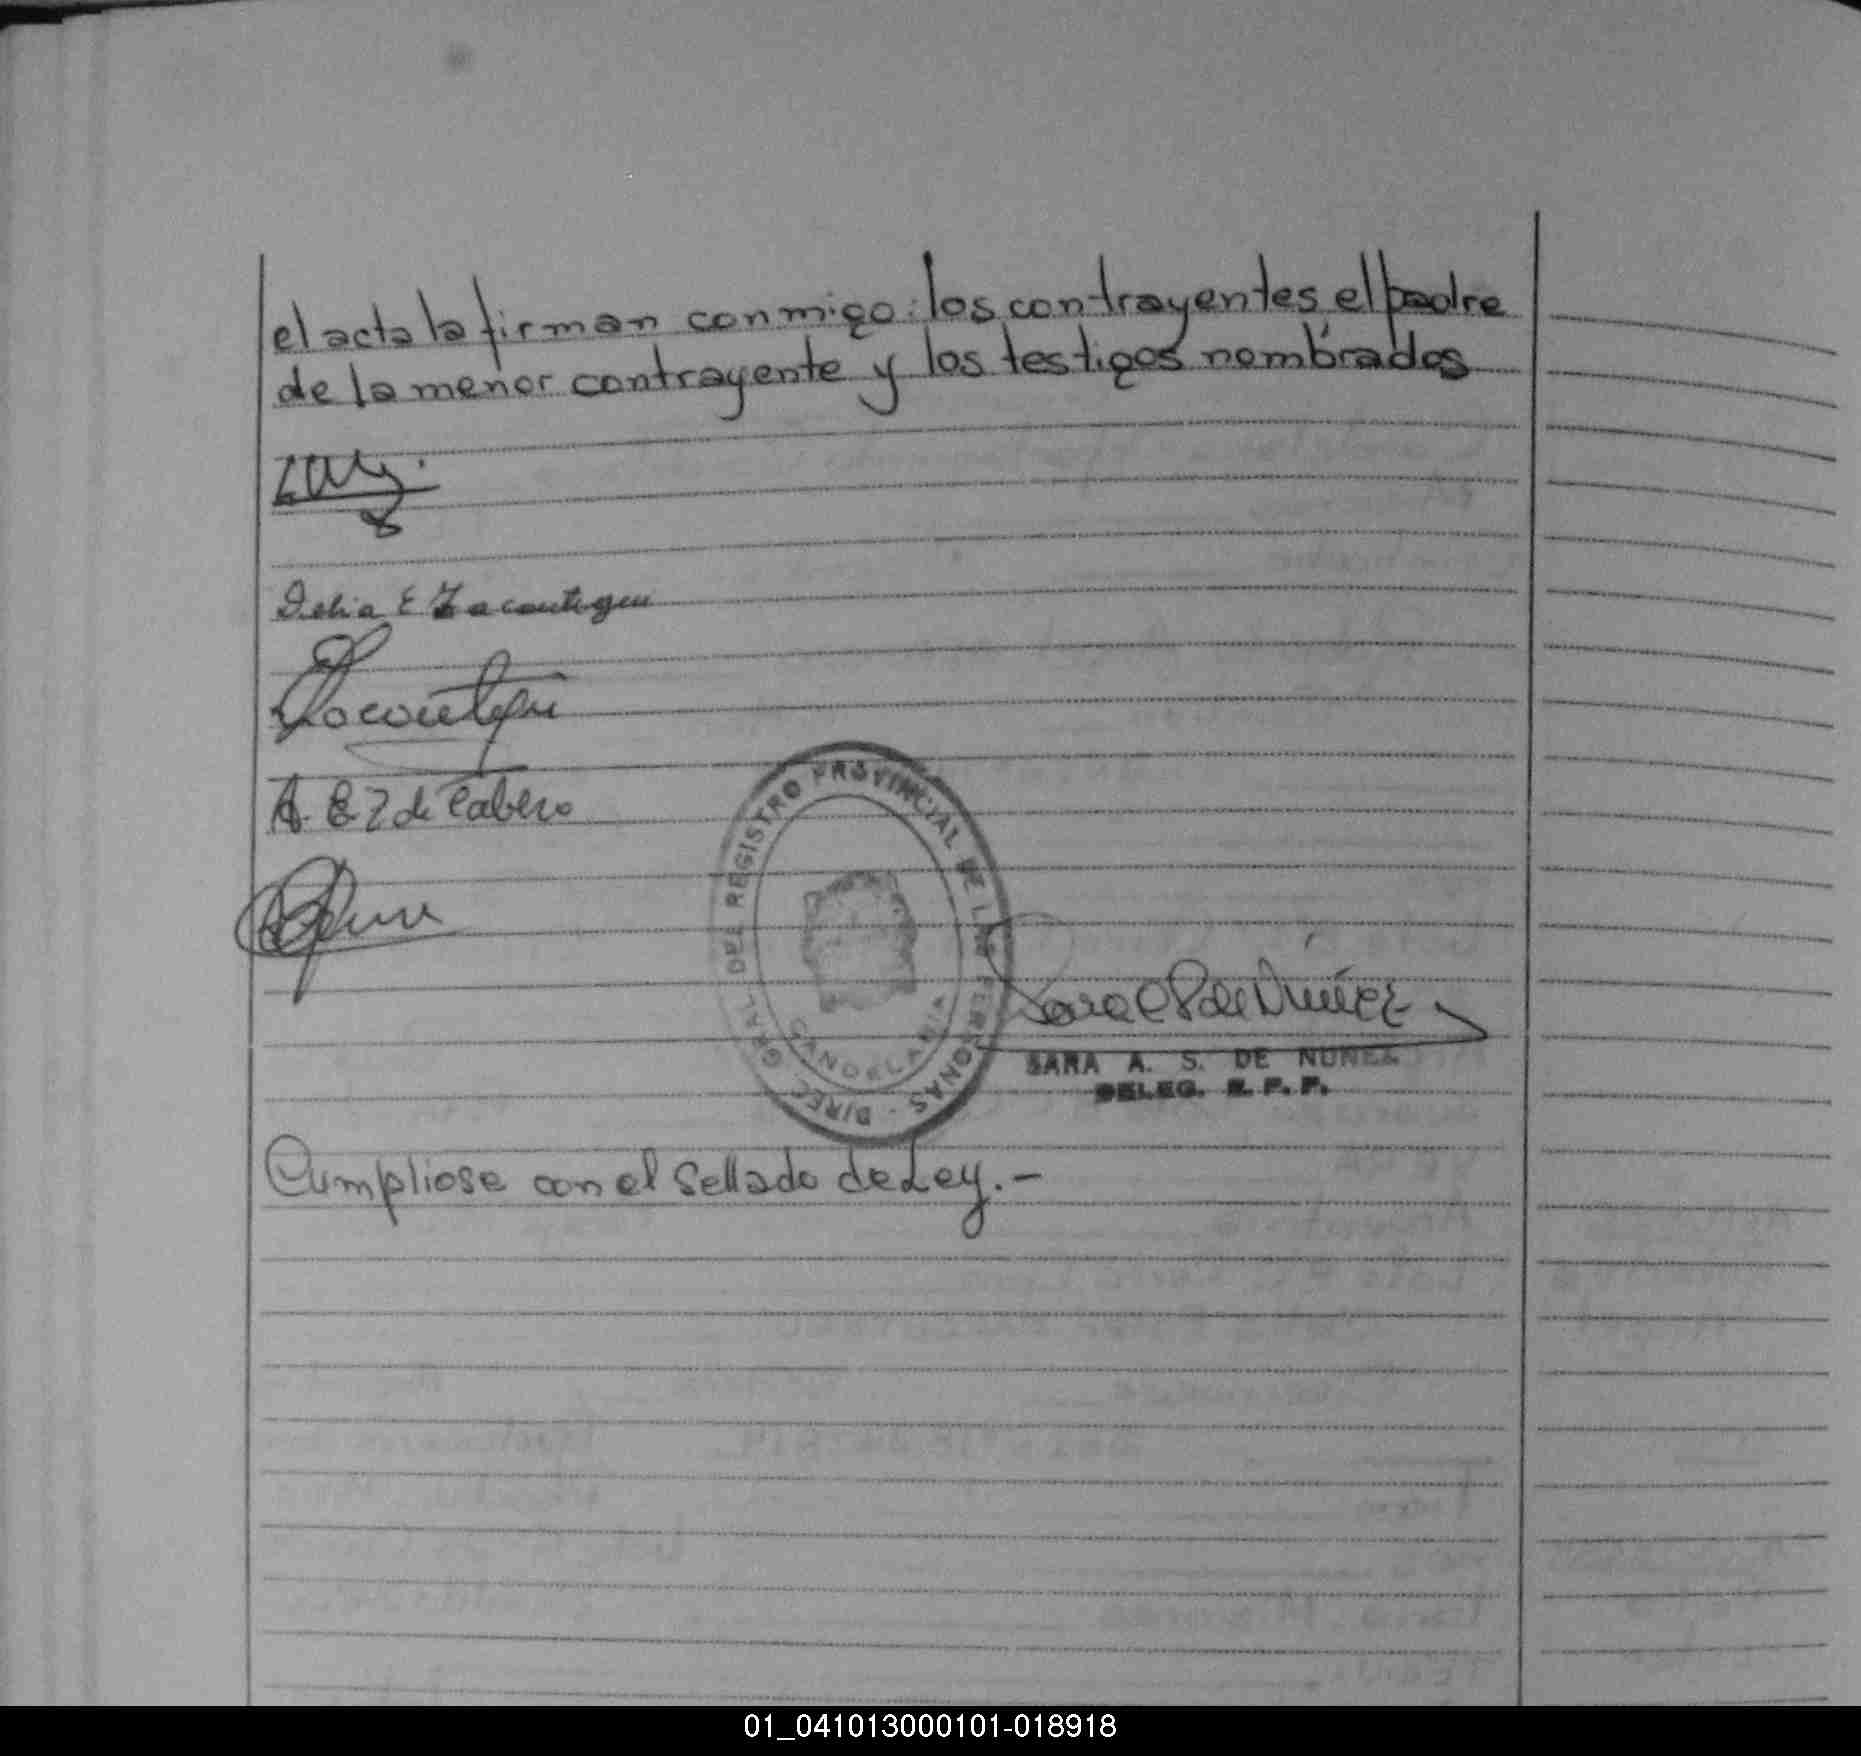 el acta la firman conmigo: los contrayentes el padre
de la menor contrayente y los testigos nombrados
Delia E Zacontegui
Zacontegui
A. E Z de Cabero
DIREC. GRAL. DEL REGISTRO PROVINCIAL DE LAS PERSONAS
CANDELARIA
Sara A S de Nuñez
SARA A. S. DE NUÑEZ
DELEG. R. P. P.
Cumpliose con el Sellado de Ley. -
01_041013000101-018918